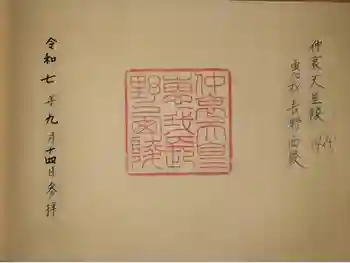 仲哀天皇陵 14代
惠我長野西陵
仲哀天皇
惠我長
野西陵
令和七年九月十四日参拝